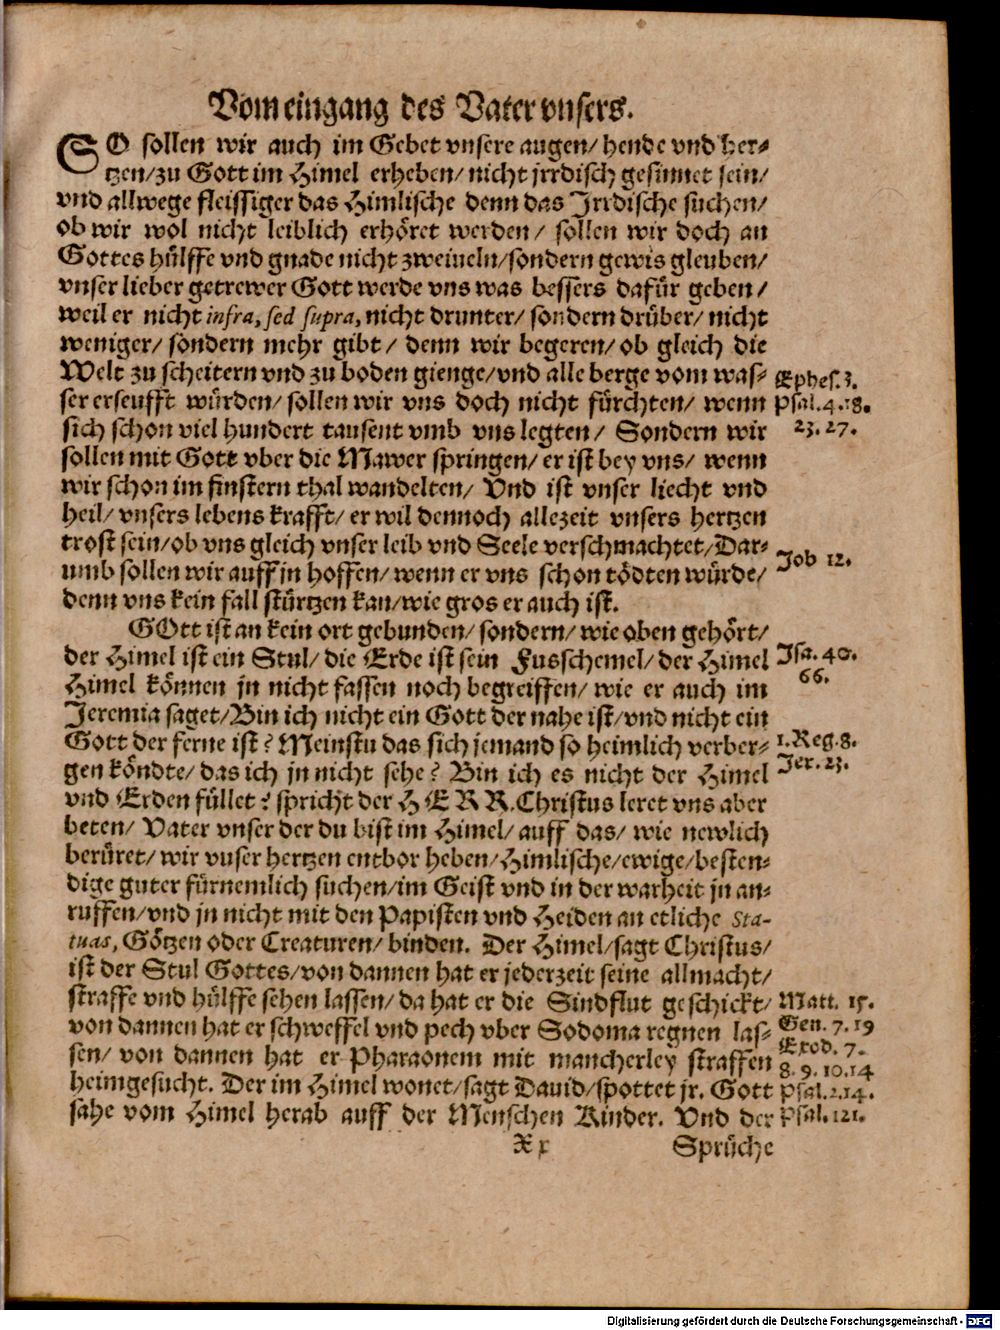 Vom eingang des Vater vnsers.
SO sollen wir auch im Gebet vnsere augen/ hende vnd her-
tzen/ zu Gott im Himel erheben/ nicht jrrdisch gesinnet sein/
vnd allwege fleissiger das Himlische denn das Jrrdische suchen/
ob wir wol nicht leiblich erhöret werden/ sollen wir doch an
Gottes hülffe vnd gnade nicht zweiueln/ sondern gewis gleuben/
vnser lieber getrewer Gott werde vns was bessers dafür geben/
weil er nicht infra, sed supra, nicht drunter/ sondern drüber/ nicht
weniger/ sondern mehr gibt/ denn wir begeren/ ob gleich die
Welt zu scheitern vnd zu boden gienge/ vnd alle berge vom was-
Ephes. 3.
ser erseufft würden/ sollen wir vns doch nicht fürchten/ wenn
Psal. 4. 18.
sich schon viel hundert tausent vmb vns legten/ Sondern wir
23. 27.
sollen mit Gott vber die Mawer springen/ er ist bey vns/ wenn
wir schon im finstern thal wandelten/ Vnd ist vnser liecht vnd
heil/ vnsers lebens krafft/ er wil dennoch allezeit vnsers hertzen
trost sein/ ob vns gleich vnser leib vnd Seele verschmachtet/ Dar-
Job 12.
umb sollen wir auff jn hoffen/ wenn er vns schon tödten würde/
denn vns kein fall stürtzen kan/ wie gros er auch ist.
GOtt ist an kein ort gebunden/ sondern/ wie oben gehört/
der Himel ist ein Stul/ die Erde ist sein Fusschemel/ der Himel
Jsa. 40.
66.
Himel können jn nicht fassen noch begreiffen/ wie er auch im
Jeremia saget/ Bin ich nicht ein Gott der nahe ist/ vnd nicht ein
Gott der ferne ist? Meinstu das sich jemand so heimlich verber-
1. Reg. 8.
gen köndte/ das ich jn nicht sehe? Bin ich es nicht der Himel
Jer. 23.
vnd Erden füllet? spricht der HERR. Christus leret vns aber
beten/ Vater vnser der du bist im Himel/ auff das/ wie newlich
berüret/ wir vnser hertzen entbor heben/ Himlische/ ewige/ besten-
dige guter fürnemlich suchen/ im Geist vnd in der warheit jn an-
ruffen/ vnd jn nicht mit den Papisten vnd Heiden an etliche Sta-
tuas, Götzen oder Creaturen/ binden. Der Himel/ sagt Christus/
ist der Stul Gottes/ von dannen hat er jederzeit seine allmacht/
straffe vnd hülffe sehen lassen/ da hat er die Sindflut geschickt/
Matt. 15.
von dannen hat er schweffel vnd pech vber Sodoma regnen las-
Gen. 7. 19
Exod. 7.
sen/ von dannen hat er Pharaonem mit mancherley straffen
8. 9. 10. 14
heimgesucht. Der im Himel wonet/ sagt Dauid/ spottet jr. Gott
Psal. 2. 14.
sahe vom Himel herab auff der Menschen Kinder. Vnd der
Psal. 121.
Xx
Sprüche
Digitalisierung gefördert durch die Deutsche Forschungsgemeinschaft - DFG